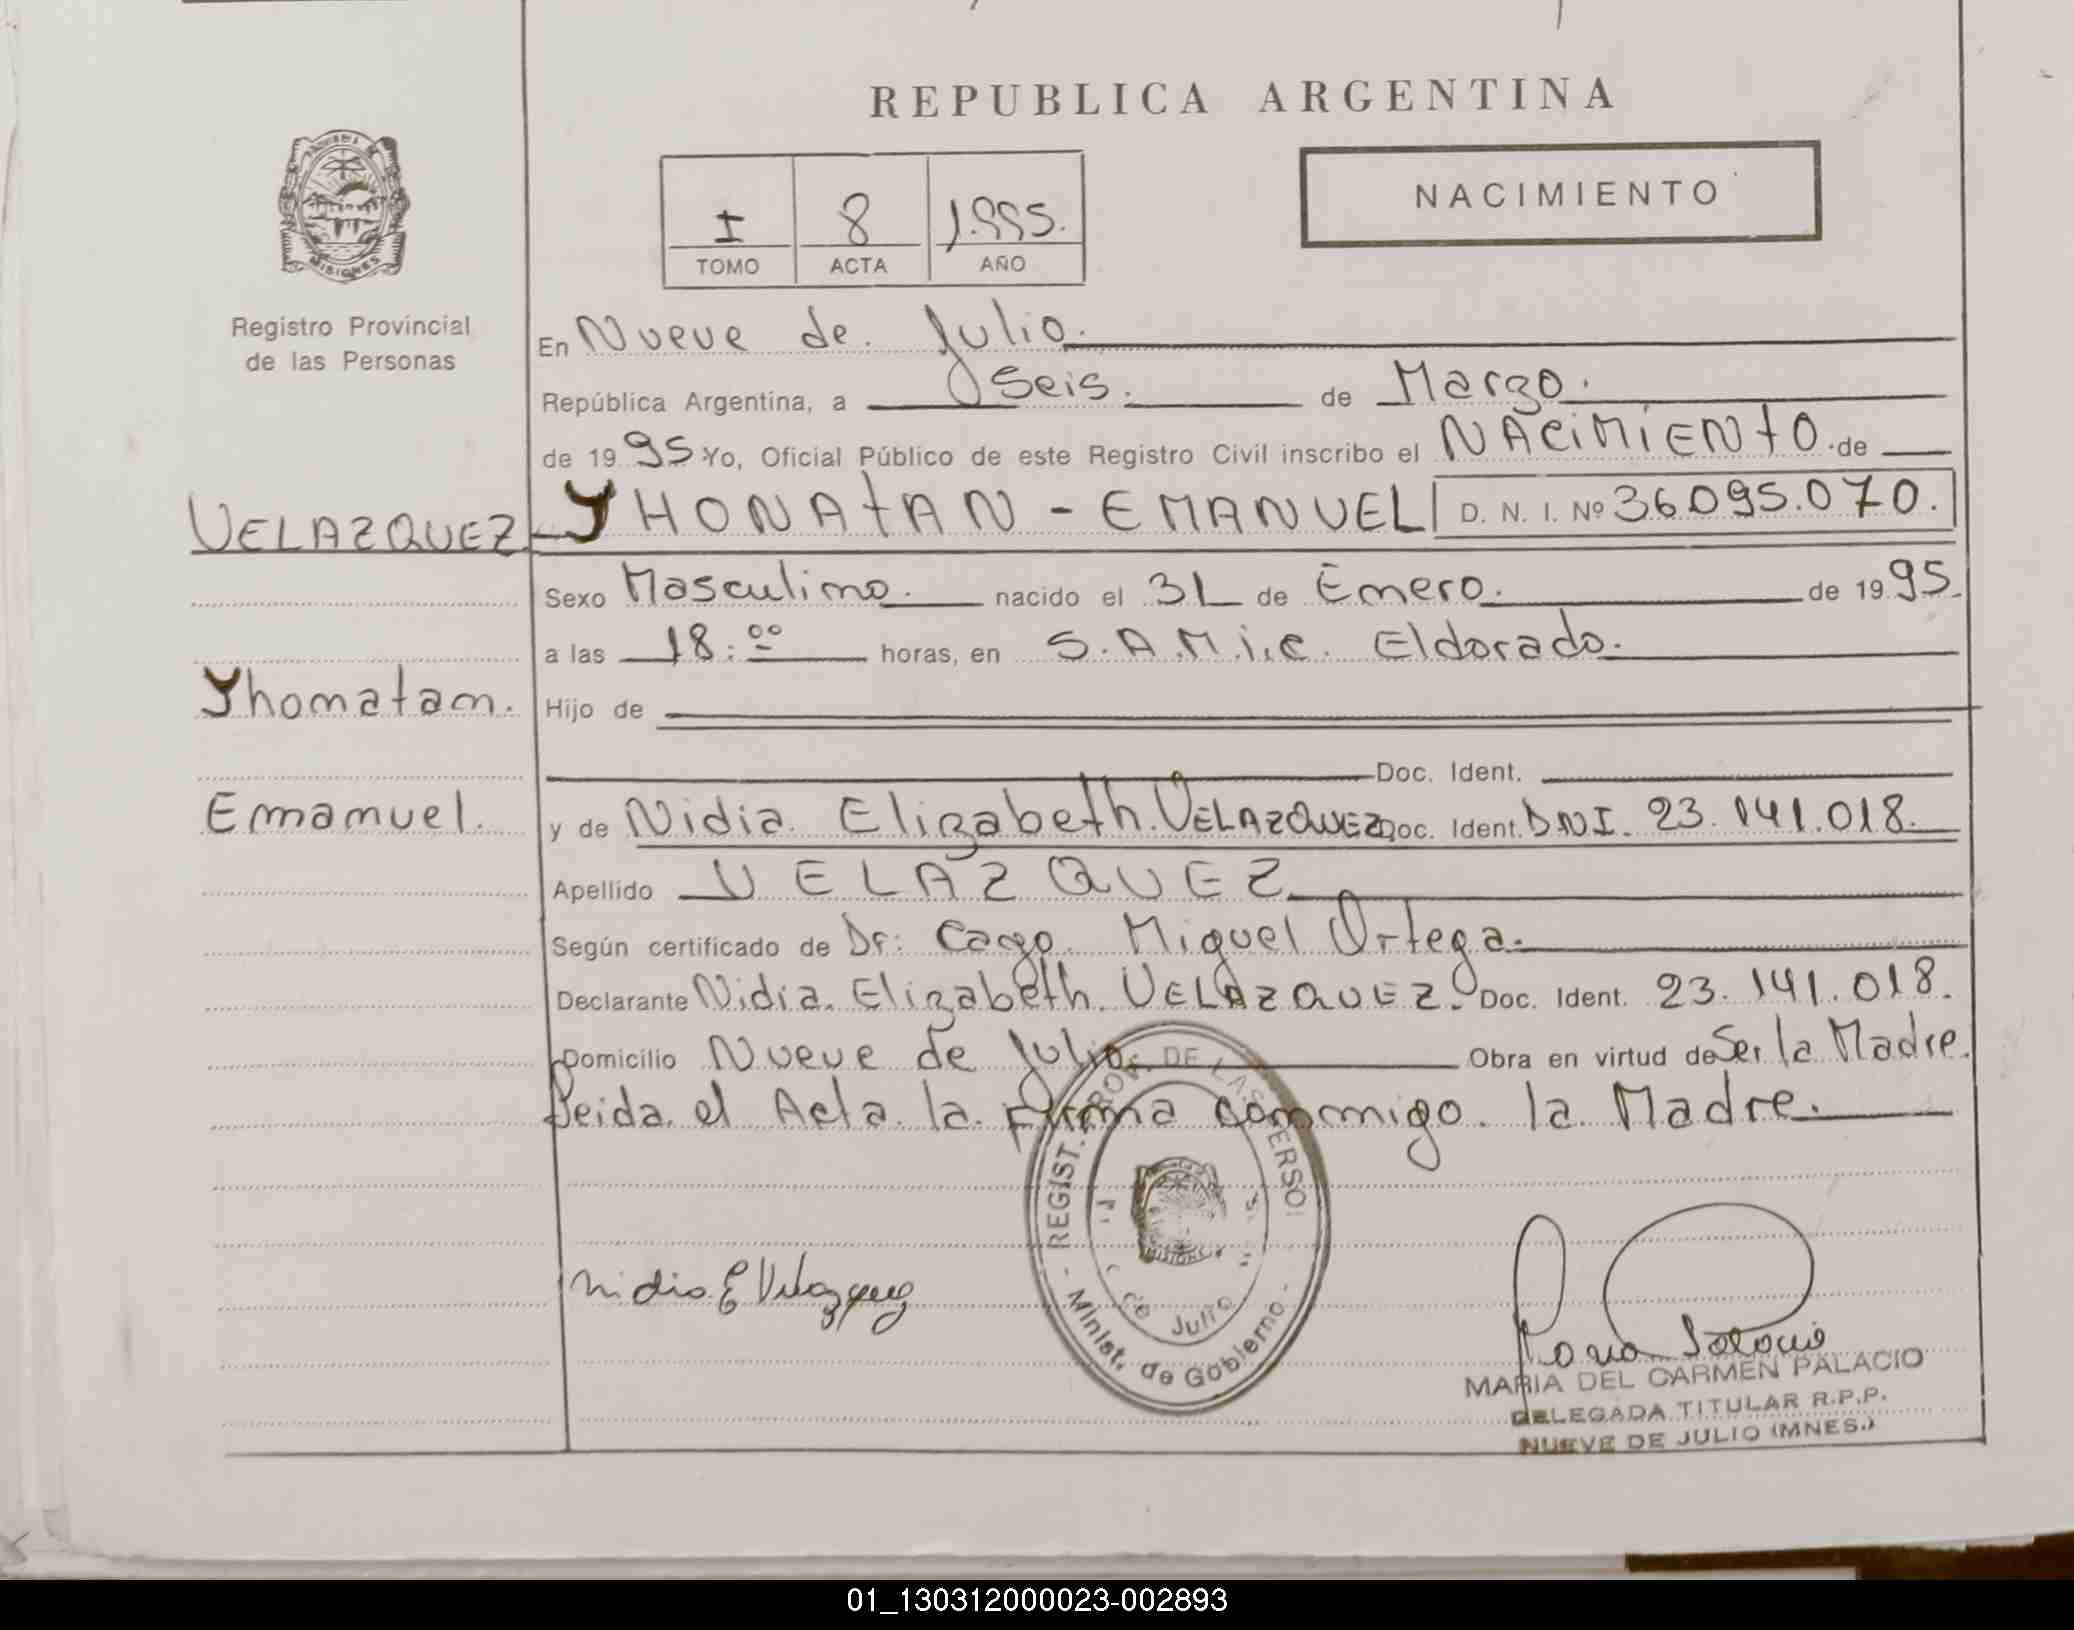 REPUBLICA ARGENTINA
MISIONES
Registro Provincial
de las Personas
I 8 1.995.
TOMO ACTA AÑO
NACIMIENTO
En Nueve de Julio.
República Argentina, a Seis. de Marzo.
de 1995 Yo, Oficial Público de este Registro Civil inscribo el NACIMIENTO de
VELAZQUEZ YHONATAN - EMANUEL D. N. I. Nº 36.095.070.
Sexo Masculino. nacido el 31 de Enero. de 1995.
a las 18:00 horas, en S.A.M.i.c. Eldorado.
Yhonatan. Hijo de
Doc. Ident.
Emanuel. y de Nidia Elizabeth. VELAZQUEZ Doc. Ident. DNI. 23.141.018.
Apellido VELAZQUEZ
Según certificado de Dr: Miguel Ortega.
Declarante Nidia. Elizabeth. VELAZQUEZ. Doc. Ident. 23.141.018.
Domicilio Nueve de Julio. Obra en virtud de Ser la Madre.
Leida el Acta la Firma conmigo la Madre.
REGIST. PROV. DE LAS PERSO.
Julio
- Minist. de Gobierno -
Nidia E Velazquez
Maria Palacio
MARIA DEL CARMEN PALACIO
DELEGADA TITULAR R.P.P.
NUEVE DE JULIO (MNES.)
01_130312000023-002893